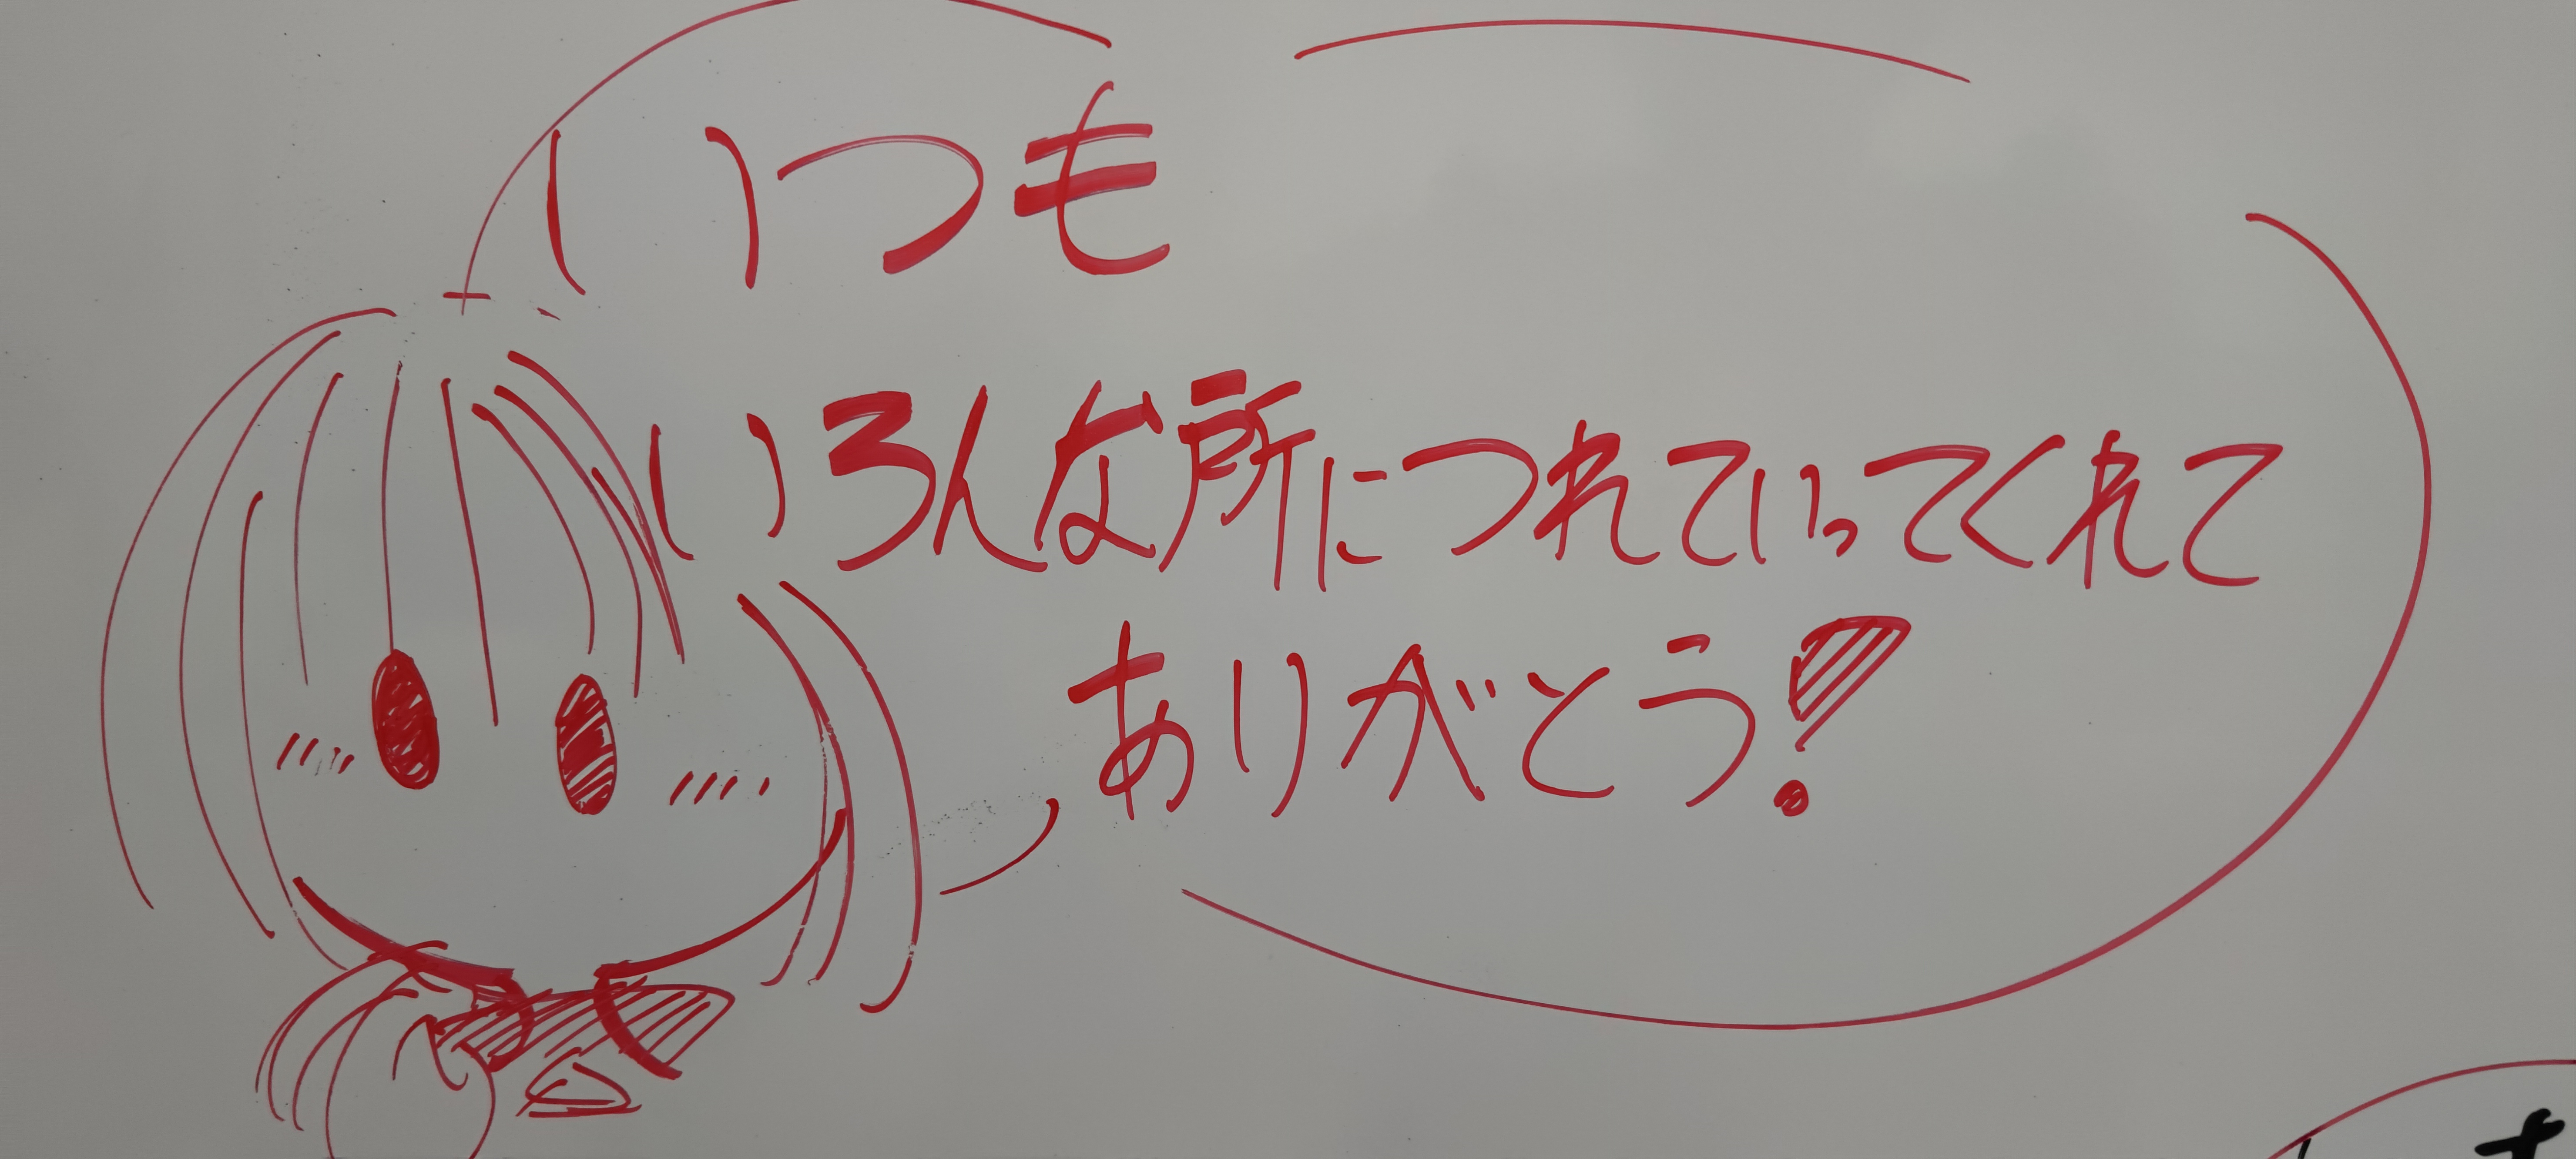 いつも
いろんな所につれていってくれて
ありがとう!